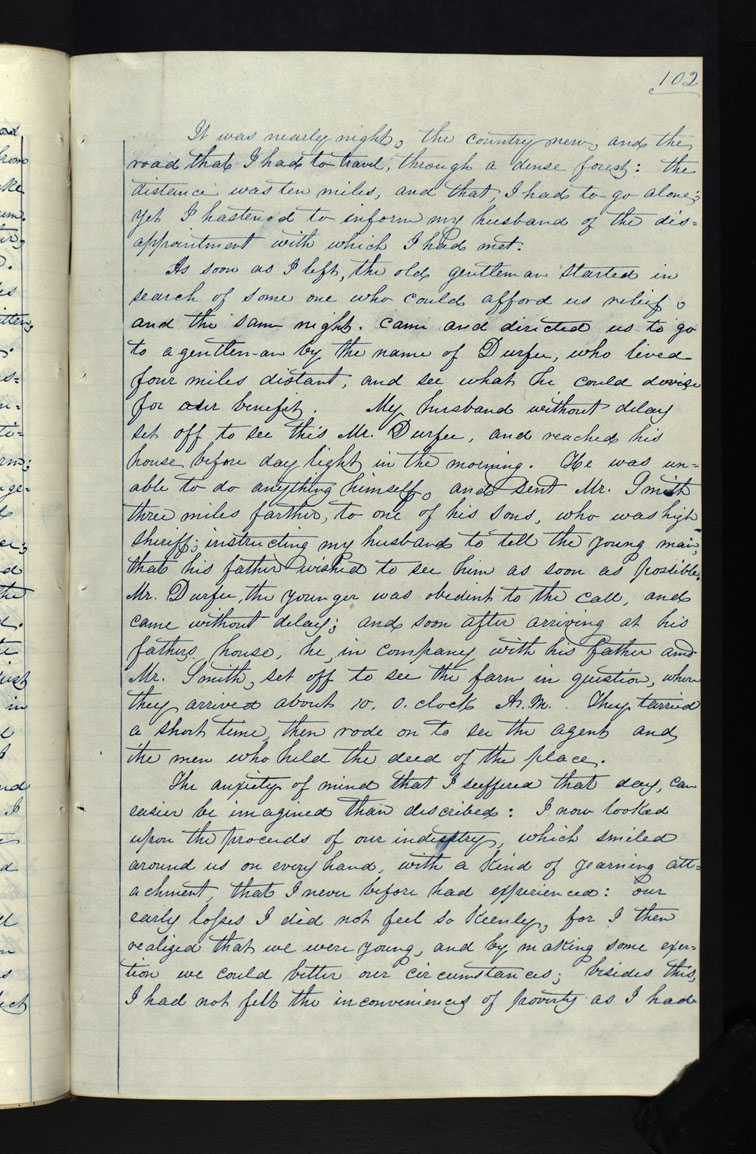 102
It was nearly night, the country new, and the
road that I had to travel, through a dense forest: the
distance was ten miles, and that, I had to go alone;
yet I hastened to inform my husband of the dis=
appointment with which I had met.
As soon as I left, the old gentleman started in
search of some one who could afford us relief,
and the same night. came and directed us to go
to a gentlem-an by the name of Durfee, who lived
four miles distant, and see what he could devise
for our benefit. My husband without delay
set off to see this Mr. Durfee, and reached his
house before day light in the morning. He was un=
able to do anything himself, and sent Mr. Smith
three miles farther, to one of his sons, who was high
sheriff; instructing my husband to tell the young man,
that his father wished to see him as soon as possible.
Mr. Durfee, the younger was obedient to the call, and
came without delay; and soon after arriving at his
fathers house, he, in company with his father and
Mr. Smith, set off to see the farm in question, where
they arrived about 10. O.clock A.M. They tarried
a short time, then rode on to see the agent and
the men who held the deed of the place.
The anxiety of mind that I suffered that day, can
easier be imagined than described: I now looked
upon the proceeds of our industry, which smiled
around us on every hand, with a kind of yearning att=
achment, that I never before had experienced: our
early losses I did not feel so keenly, for I then
realized that we were young, and by making some exer=
tion we could better our circumstances; besides this,
I had not felt the inconveniences of poverty as I had